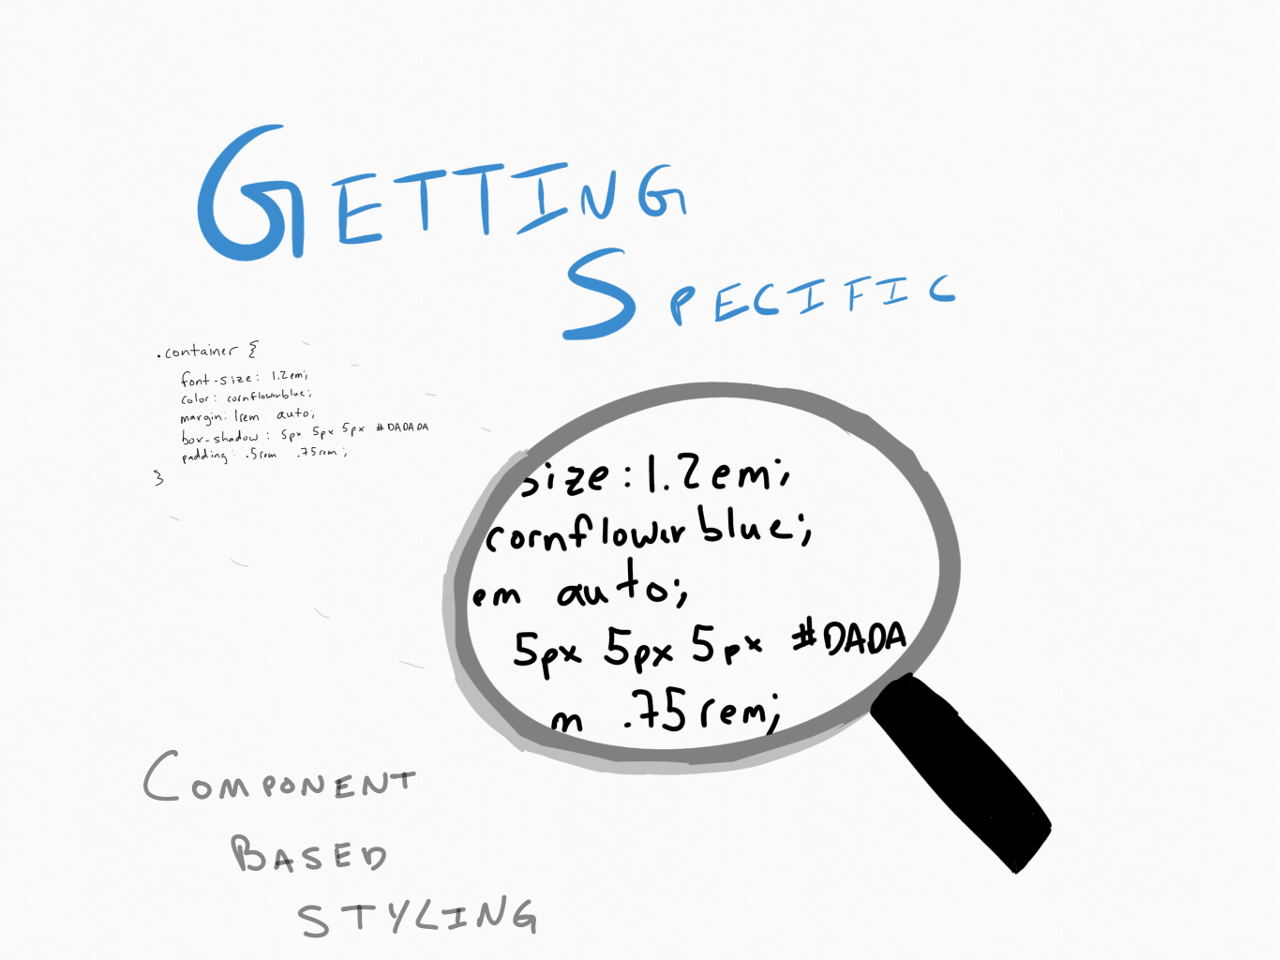 GETTING
SPECIFIC
.container {
font-size: 1.2em;
color: cornflowerblue;
margin: 1rem auto;
box-shadow: 5px 5px 5px #DADADA
padding: .5rem .75rem;
}
size: 1.2em;
cornflowerblue;
em auto;
5px 5px 5px #DADA
m .75rem;
COMPONENT
BASED
STYLING